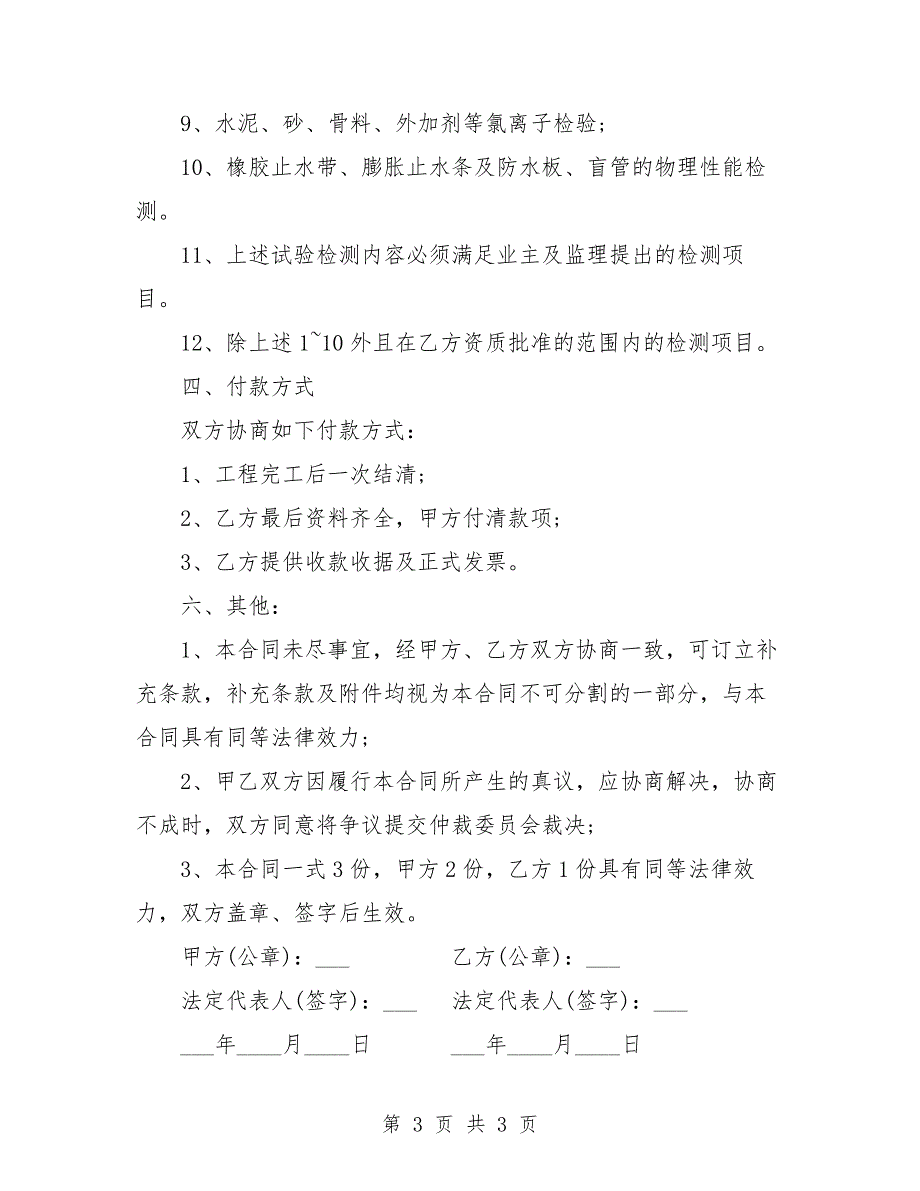 9、水泥、砂、骨料、外加剂等氯离子检验;
10、橡胶止水带、膨胀止水条及防水板、盲管的物理性能检
测。
11、上述试验检测内容必须满足业主及监理提出的检测项
目。
12、除上述1~10外且在乙方资质批准的范围内的检测项目。
四、付款方式
双方协商如下付款方式:
1、工程完工后一次结清;
2、乙方最后资料齐全，甲方付清款项;
3、乙方提供收款收据及正式发票。
六、其他:
1、本合同未尽事宜，经甲方、乙方双方协商一致，可订立补
充条款，补充条款及附件均视为本合同不可分割的一部分，与本
合同具有同等法律效力;
2、甲乙双方因履行本合同所产生的真议，应协商解决，协商
不成时，双方同意将争议提交仲裁委员会裁决;
3、本合同一式3份，甲方2份，乙方1份具有同等法律效
力，双方盖章、签字后生效。
甲方(公章): ___ 乙方(公章): ___
法定代表人(签字): ___ 法定代表人(签字): ___
___年____月____日 ___年____月____日
第 3 页 共 3 页